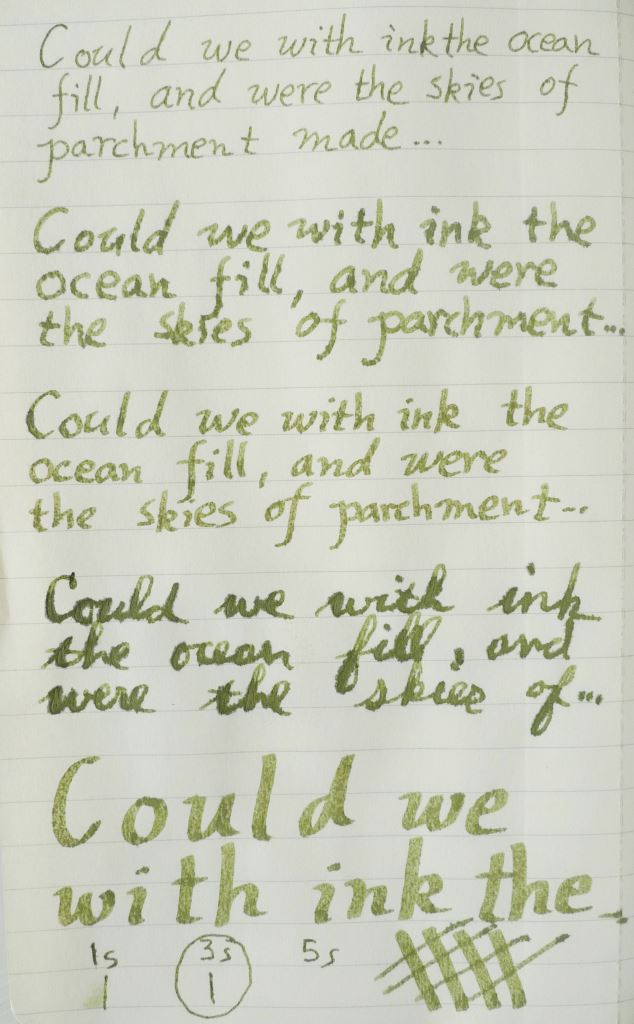 Could we with ink the ocean
fill, and were the skies of
parchment made...
Could we with ink the
ocean fill, and were
the skies of parchment...
Could we with ink the
ocean fill, and were
the skies of parchment...
Could we with ink
the ocean fill, and
were the skies of...
Could we
with ink the...
1s 3s 5s